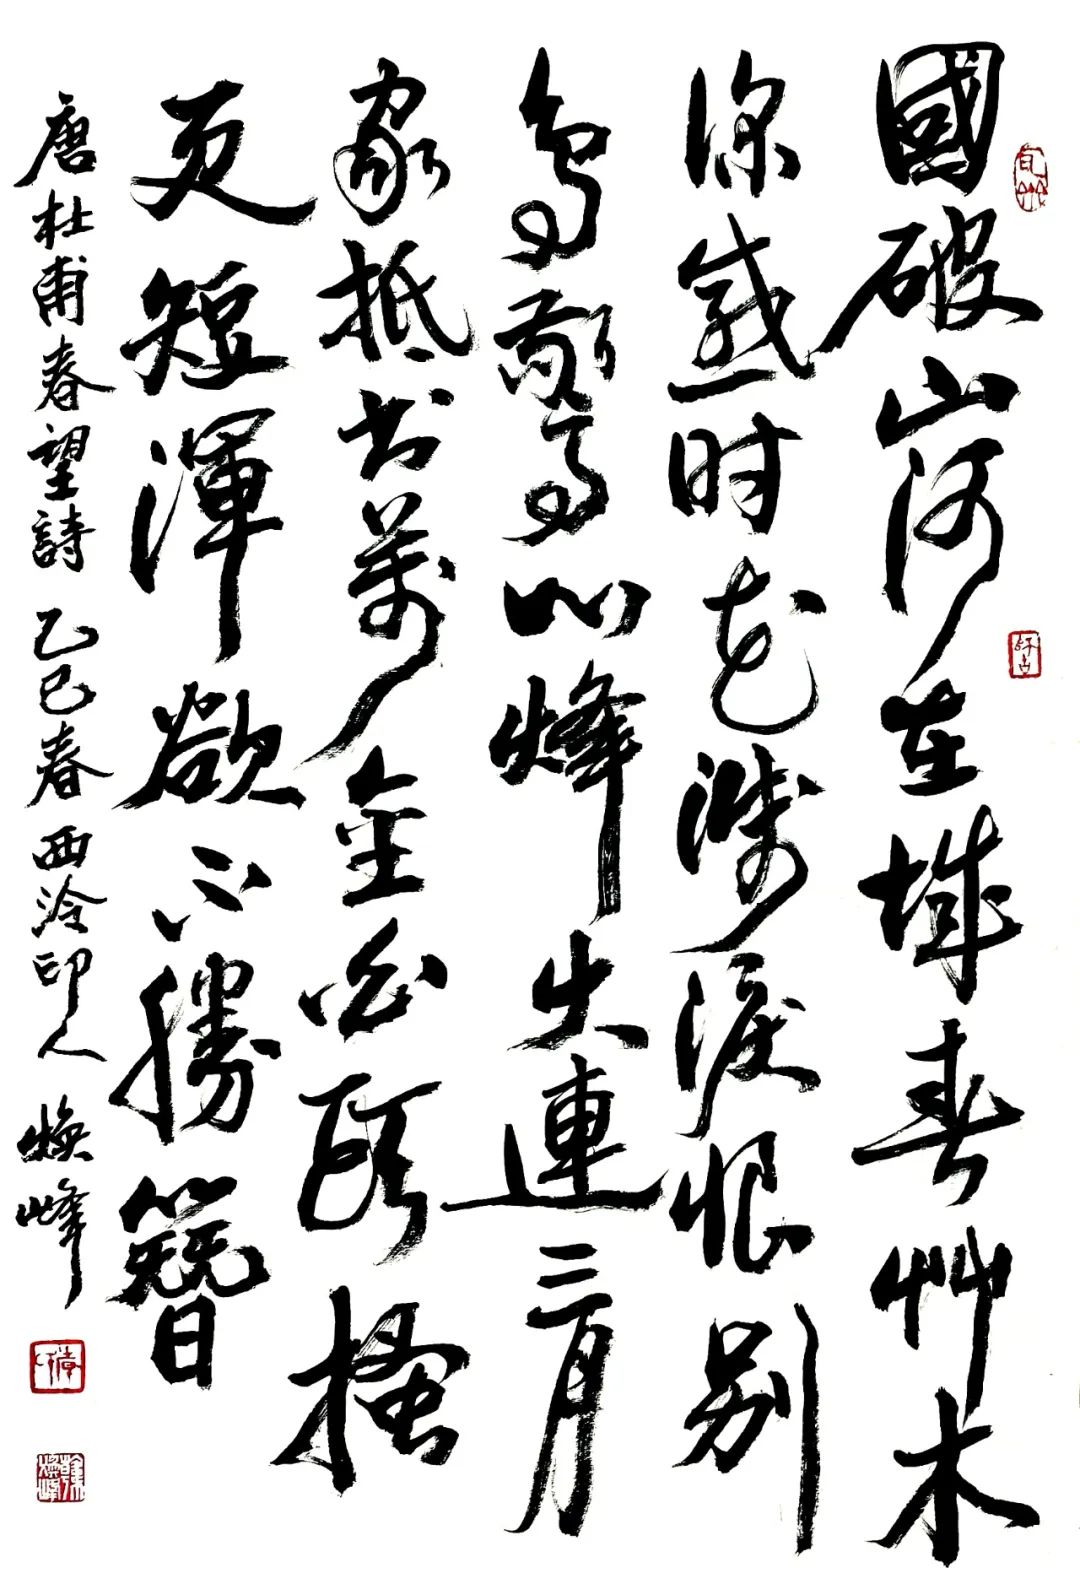 國破山河在城春艸木
深感时花濺淚恨别
鸟驚心烽火連三月
家抵书萬金白頭搔
更短渾欲不勝簪
唐杜甫春望詩 乙巳春 西泠印人 焕峰